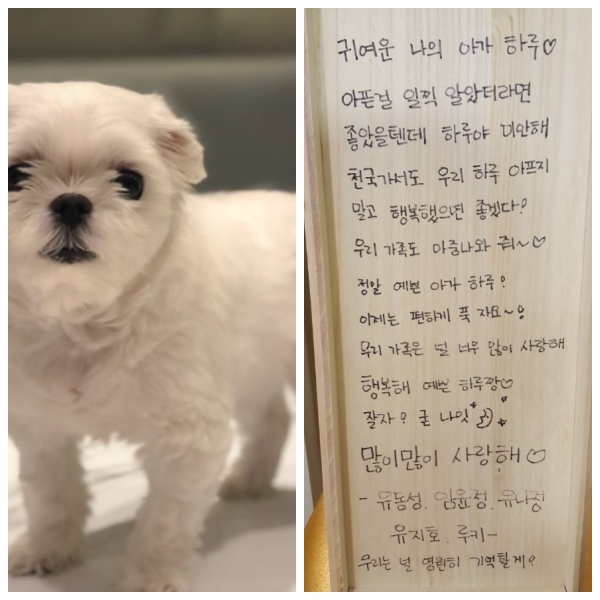 귀여운 나의 아가 하루♡
아픈걸 일찍 알았더라면
좋았을텐데 하루야 미안해
천국가서도 우리 하루 아프지
말고 행복했으면 좋겠다?
우리 가족도 마중나와 줘~♡
정말 예쁜 아가 하루?
이제는 편하게 푹 자요~?
우리 가족은 널 너무 많이 사랑해
행복해 예쁜 하루짱♡
잘자? 굿 나잇
많이많이 사랑해♡
- 유동성. 임윤정. 유나정
유지호. 루키-
우리는 널 영원히 기억할게?